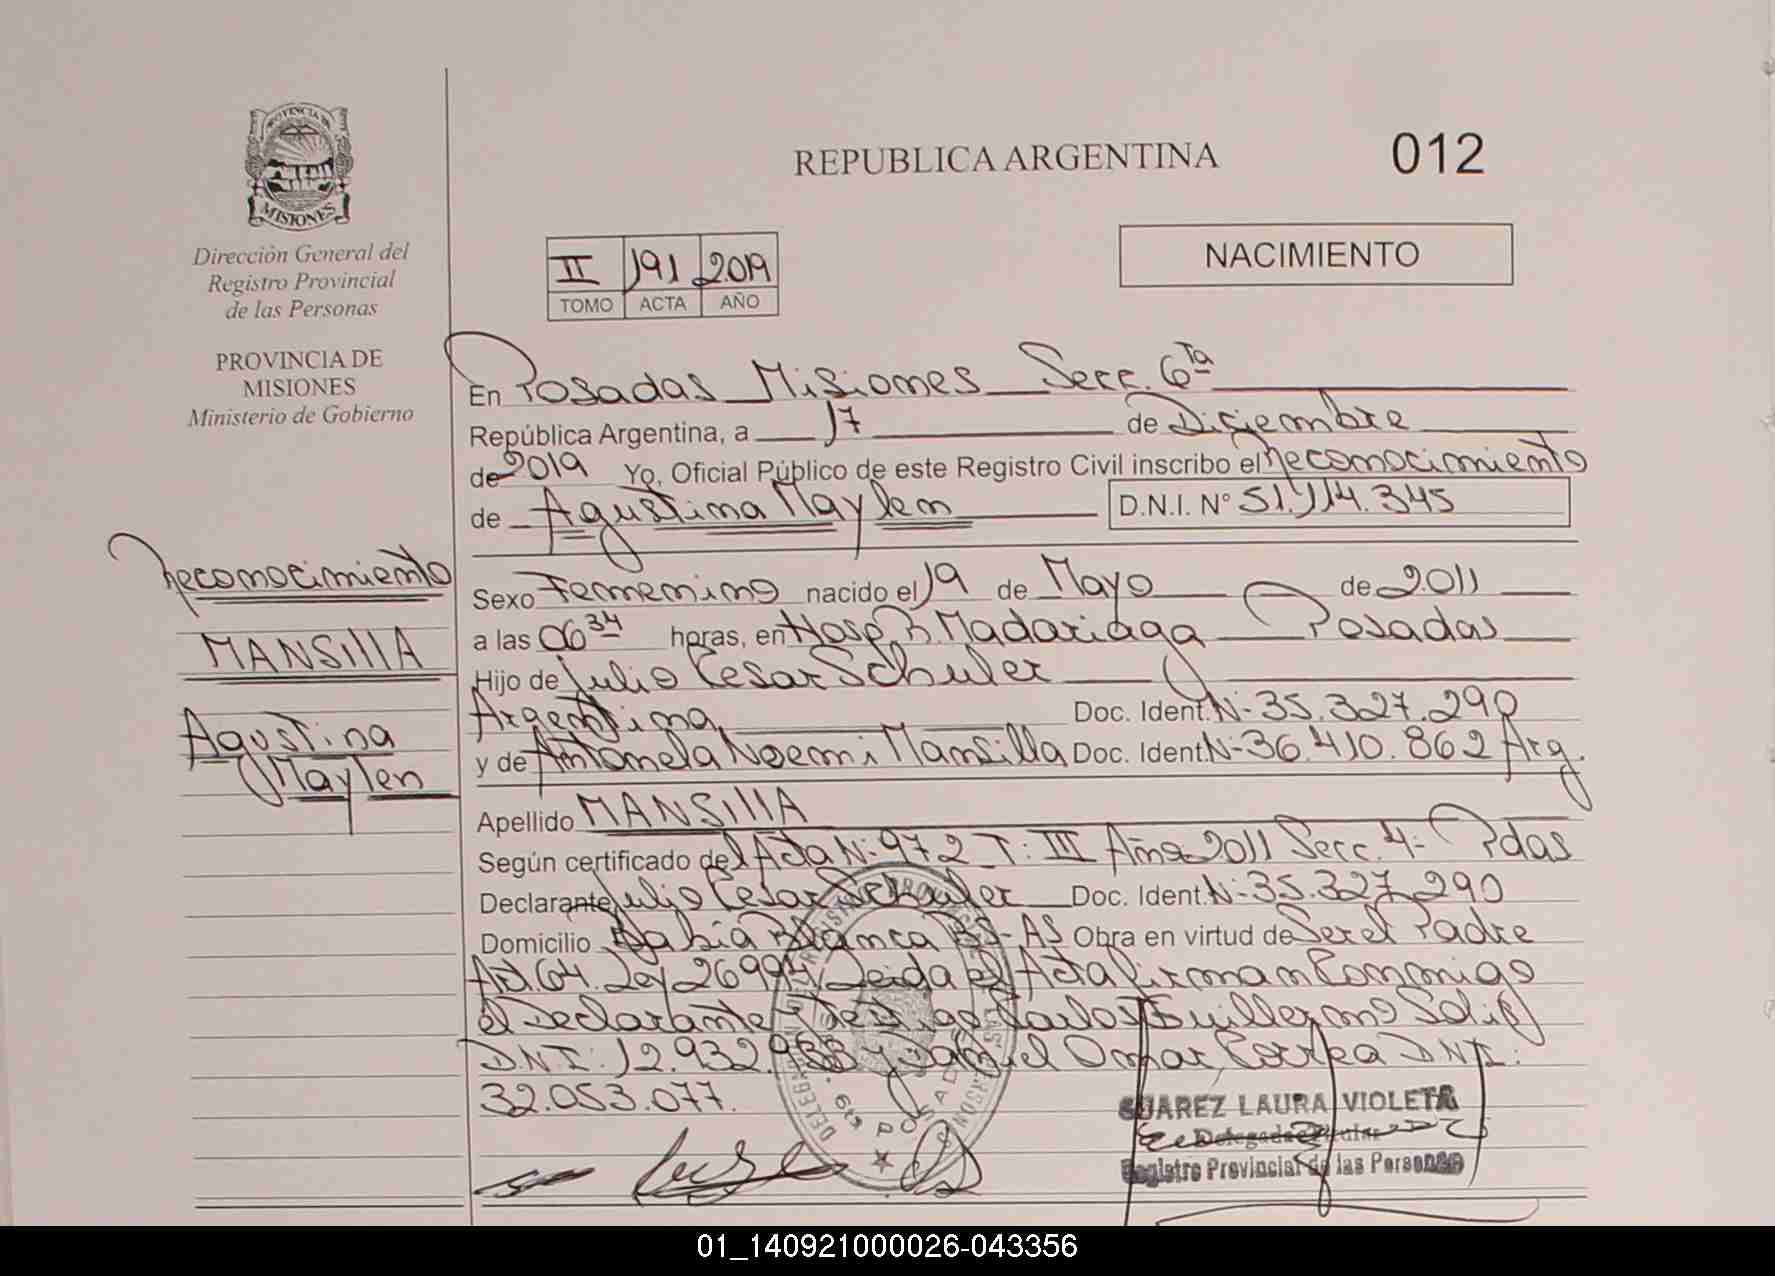 PROVINCIA DE
MISIONES
Dirección General del
Registro Provincial
de las Personas
PROVINCIA DE
MISIONES
Ministerio de Gobierno
REPUBLICA ARGENTINA
012
II 191 2019
TOMO ACTA AÑO
NACIMIENTO
En Posadas Misiones Secc. 6ta
República Argentina, a 17 de Diciembre
de 2019 Yo, Oficial Público de este Registro Civil inscribo el Reconocimiento
de Agustina Maylen D.N.I. N° 51.114.345
Reconocimiento
MANSILLA
Agustina
Maylen
Sexo Femenino nacido el 19 de Mayo de 2011
a las 06 34 horas, en Hosp. R. Madariaga Posadas
Hijo de Julio Cesar Schuler
Argentina Doc. Ident. N- 35.327.290
y de Antonela Noemi Mansilla Doc. Ident. N- 36.410.862 Arg.
Apellido MANSILLA
Según certificado del Acta N: 972 T: III Año 2011 Secc. 4- Pdas
Declarante Julio Cesar Schuler Doc. Ident. N- 35.327.290
Domicilio Bahia Blanca BS-AS Obra en virtud de Ser el Padre
Art. 64. Ley 26994 Leida el Acta firman Conmigo
el Declarante Carlos Guillermo
D.N.I: 12.932.988 y Omar Correa DNI:
32.053.077.
SUAREZ LAURA VIOLETA
Delegada Titular
Registro Provincial de las Personas
POSADAS
01_140921000026-043356